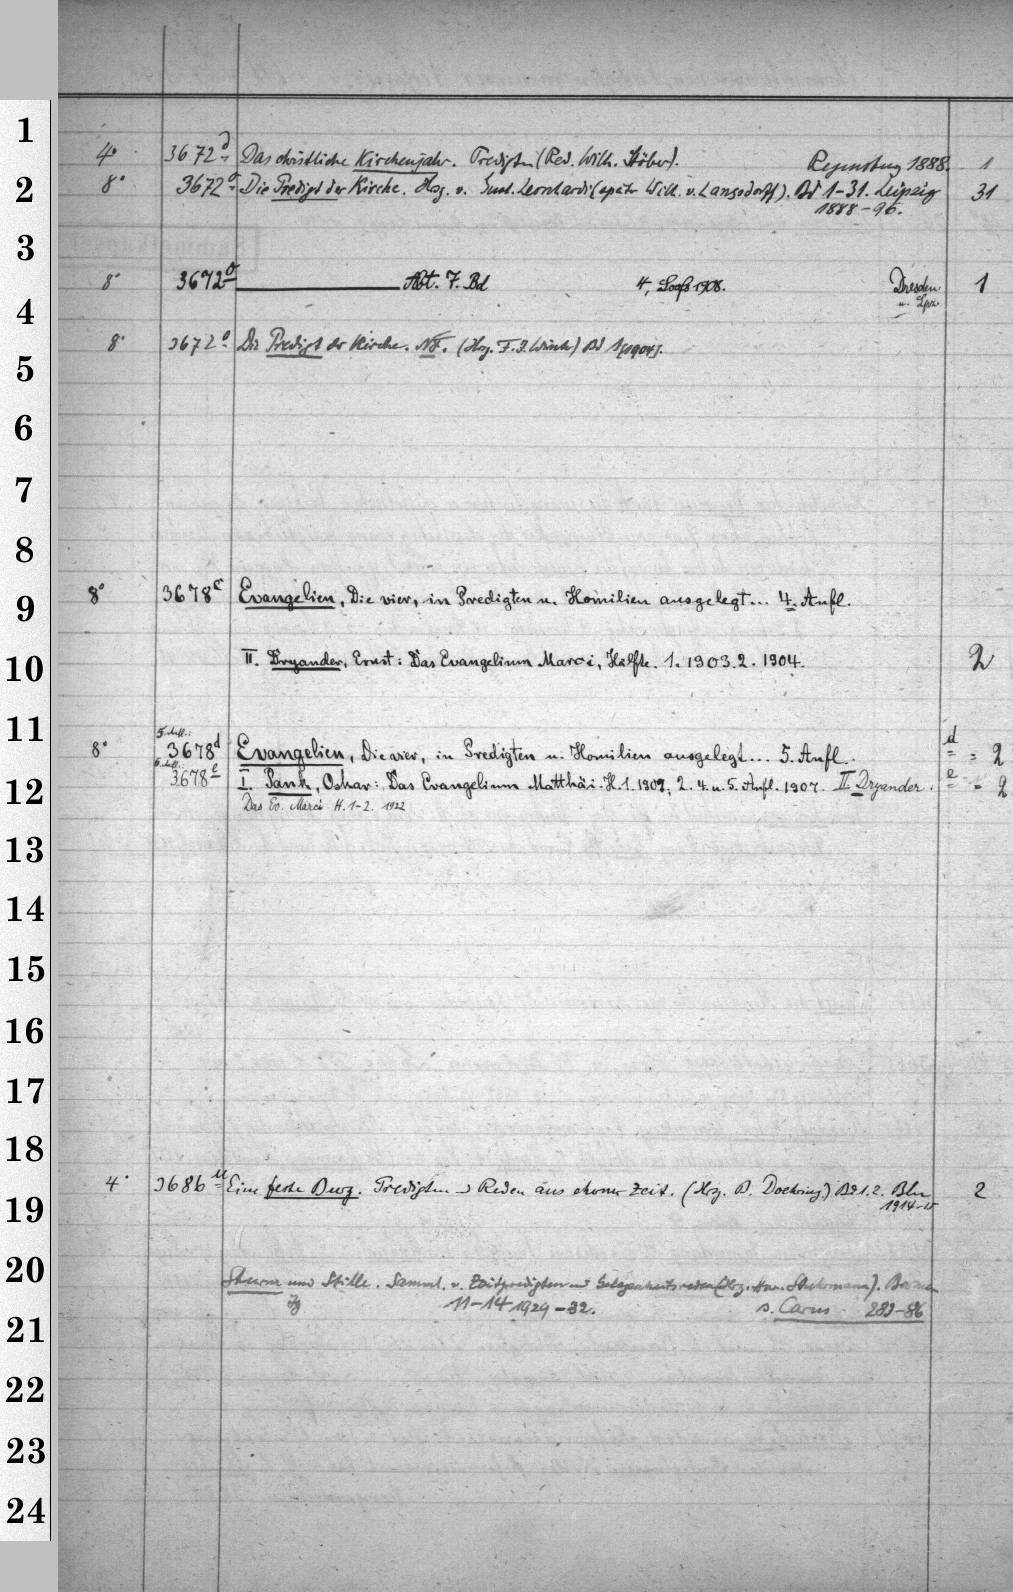 1
4° 3672 d Das christliche Kirchenjahr. Predigten (Red. Wilh. Stöber). Regensburg 1888. 1
2
8° 3672 Die Predigt der Kirche. Hrsg. v. Gust. Leonhardi (später Wilh. v. Langsdorff). Bd 1-31. Leipzig 31
1888-96.
3
8° 3672 Abt. 7. Bd 4, 1908. Dresden 1
u. Lpz.
4
8° 3672 e Die Predigt der Kirche. NF. (Hrsg. F. J. Winter) Bd 1 [1904].
5
6
7
8
8° 3678 c Evangelien, Die vier, in Predigten u. Homilien ausgelegt... 4. Aufl.
9
10
II. Dryander, Ernst: Das Evangelium Marci, Hälfte. 1. 1903. 2. 1904. 2
11
5. Aufl.: d
8° 3678 d Evangelien, Die vier, in Predigten u. Homilien ausgelegt... 5. Aufl. = 2
6. Aufl.:
3678 e I. Pank, Oskar: Das Evangelium Matthäi. H. 1. 1909, 2. 4. u. 5. Aufl. 1907. II Dryander. e = 2
12
Das Ev. Marci H. 1-2. 1922
13
14
15
16
17
18
4° 3686 Eine feste Burg. Predigten u Reden aus eherner Zeit. (Hrg. B. Doehring) Bd 1.2. Bln 2
19
1914-15
20
Sturm und Stille. Samml. v. Zeitpredigten und Gelegenheitsreden (Hrg. ). 
Jg 11-14 1929-32. s. Carus 283-86
21
22
23
24